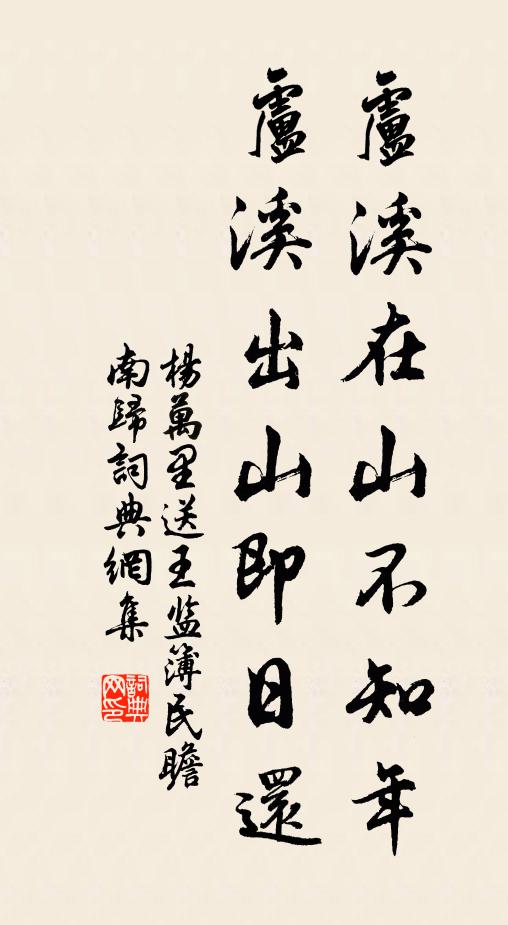 盧溪在山不知年
盧溪出山即日還
楊萬里送王监簿民瞻
南歸詞典網集
詞典
网印